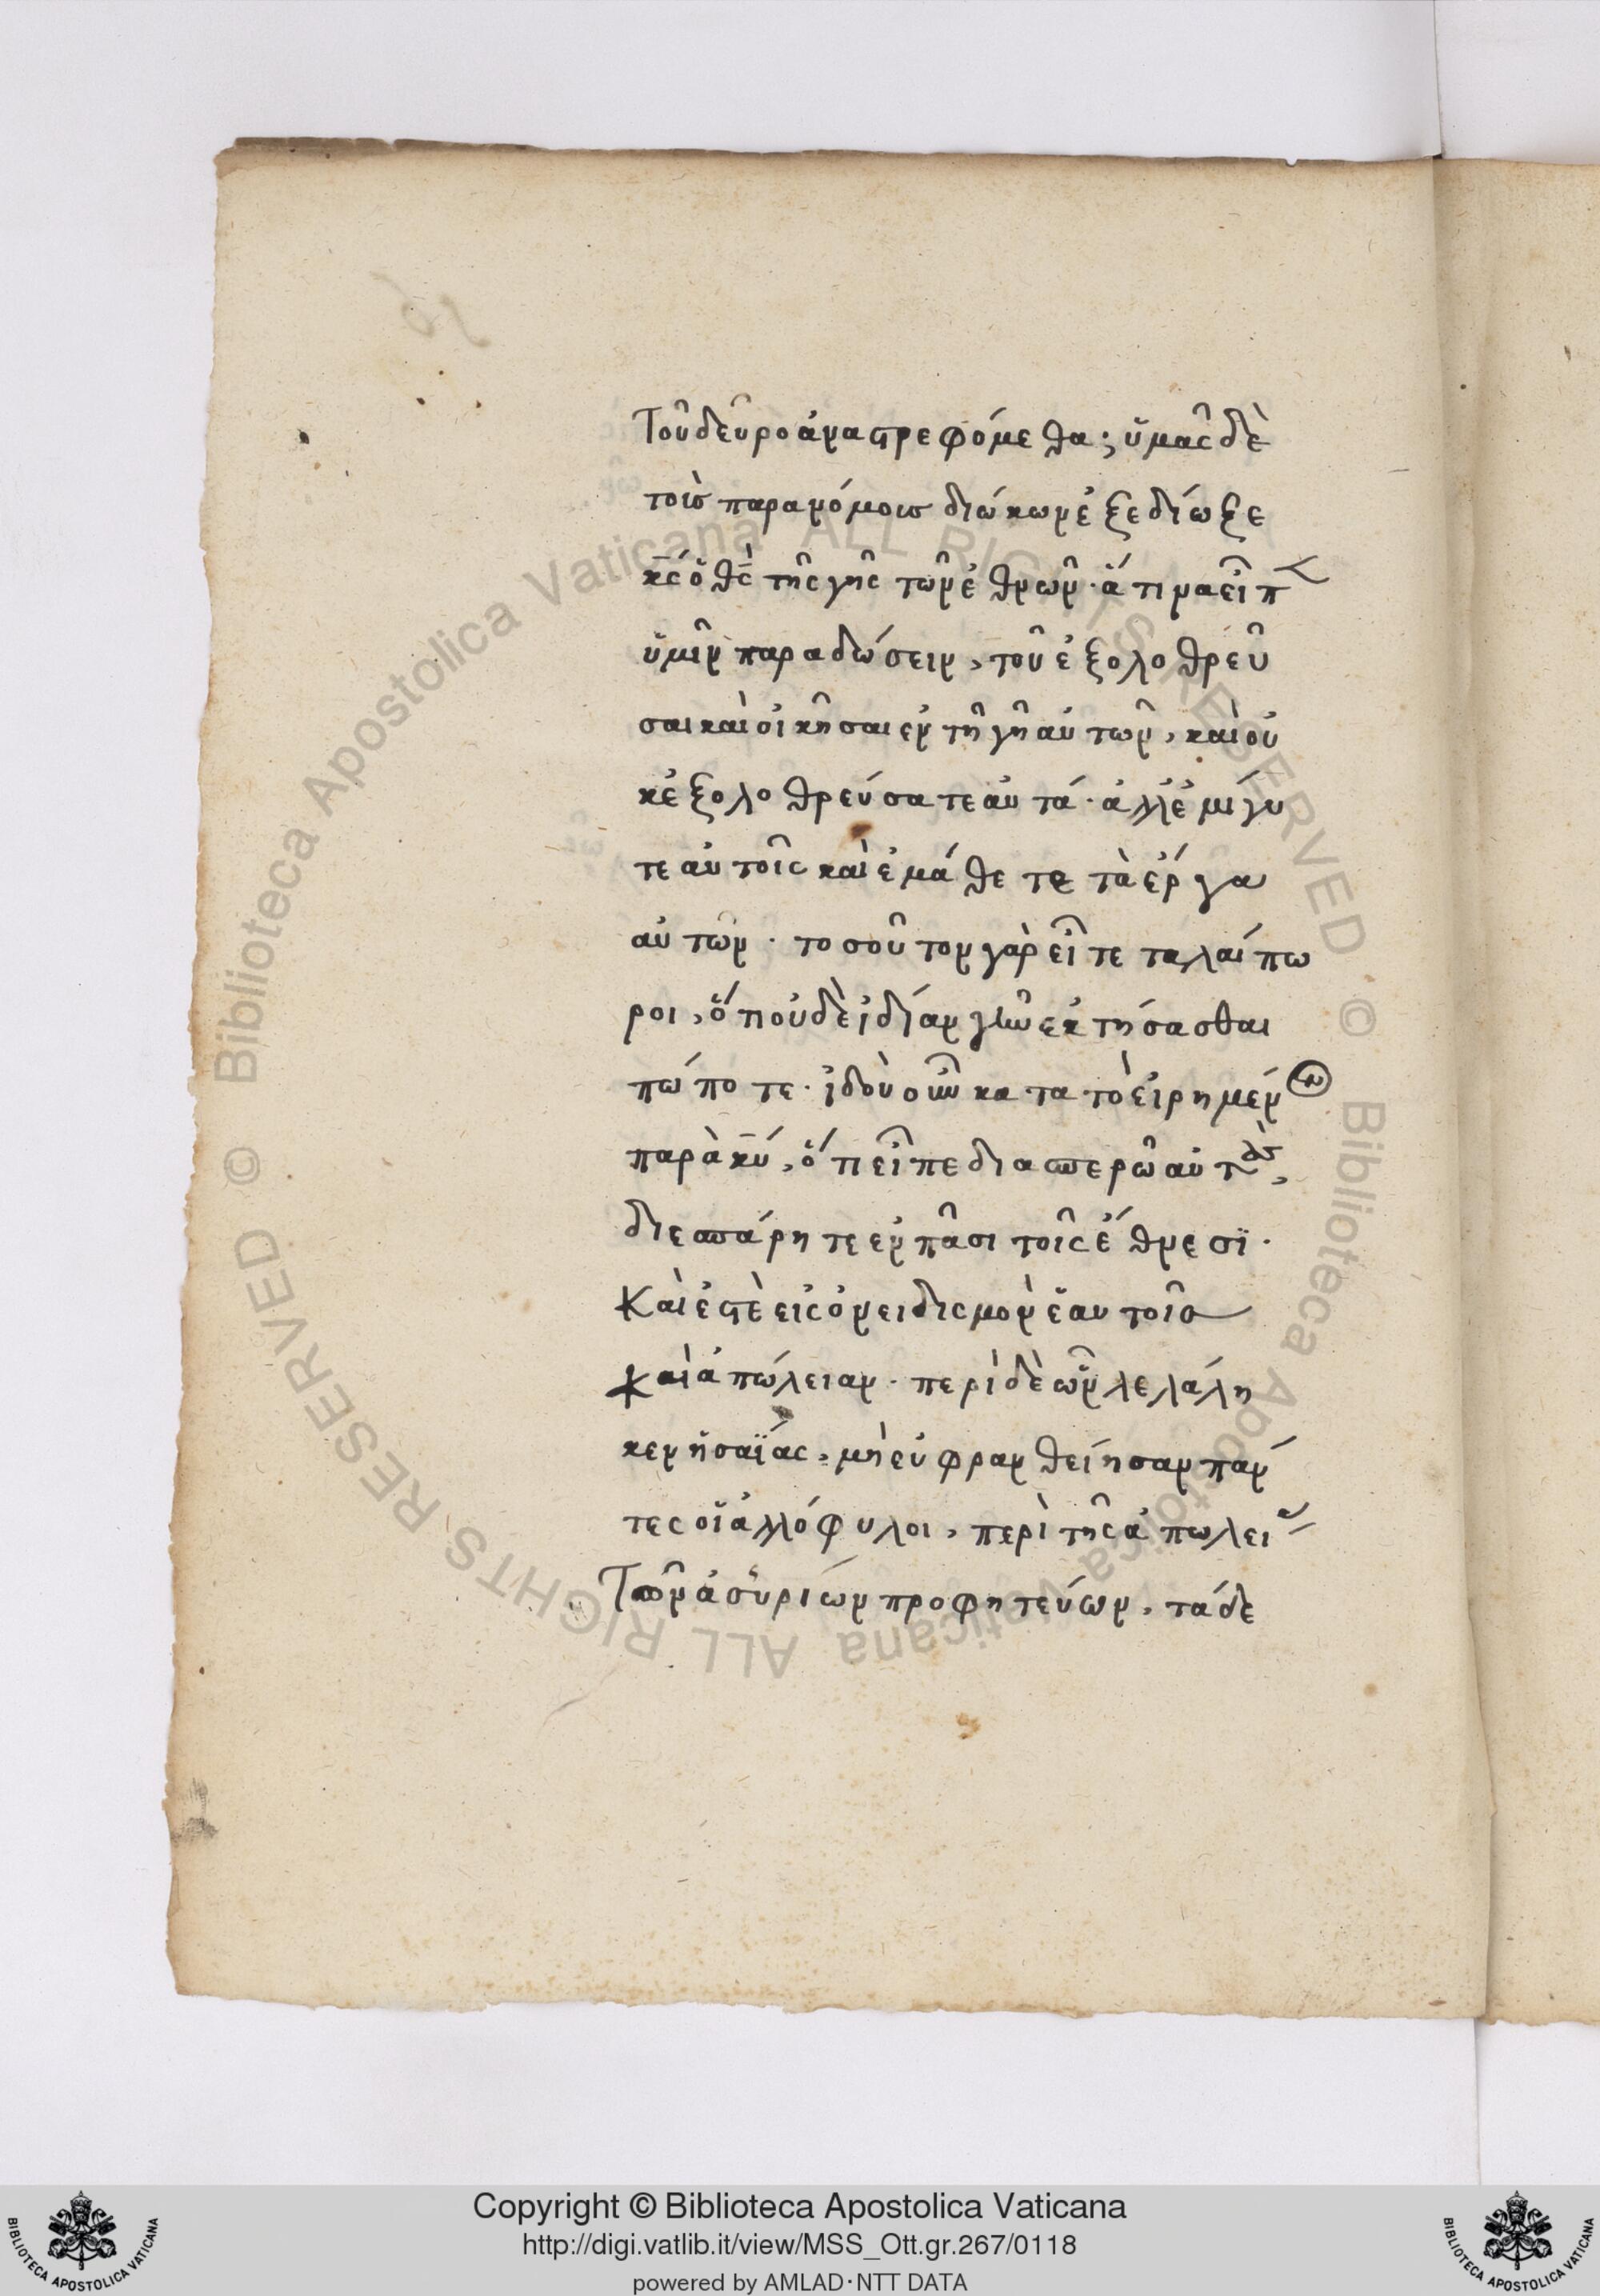 Τοῦ δεῦρο ἀναστρεφόμεθα; ὑμᾶς δὲ
τοῖς παρανόμοις διώκων ἐξεδίωξε
κ̅ς ὁ θ̅ς τῆς γῆς τῶν ἐθνῶν· ἅτινα εἶπ
ὑμῖν παραδώσειν, τοῦ ἐξολοθρεῦ
σαι καὶ οἰκῆσαι ἐν τῆ γῆ αὐτῶν, καὶ οὐ
κἐξολοθρεύσατε αὐτά· ἀλλ' ἐμίγυ
τε αὐτοῖς καὶ ἐμάθετε τὰ ἔργα
αὐτῶν· τοσοῦτον γάρ εἶτε ταλαίπω
ροι, ὅτι οὐδὲ ἰδίαν γῆν ἐκτήσασθαι
πώποτε· ἰδοὺ οὖν κατα τὸ εἰρημέν
παρὰ κ̅υ, ὅτι εἶπε διασπερῶ αὐτὰς,
διεσπάρητε ἐν πᾶσι τοῖς ἔθνεσϊ·
Καὶ ἐστὲ εἰς ὀνειδισμὸν ἑαυτοῖς
καὶ ἀπώλειαν· περὶ δὲ ὧν λελάλη
κεν ἡσαΐας, μὴ εὐφρανθείησαν πάν
τες οἱ ἀλλόφυλοι, περὶ τῆς ἀπωλεί
Τῶν ἀσυριών προφητεύων, τάδε
Copyright © Biblioteca Apostolica Vaticana
http://digi.vatlib.it/view/MSS_Ott.gr.267/0118
powered by AMLAD·NTT DATA